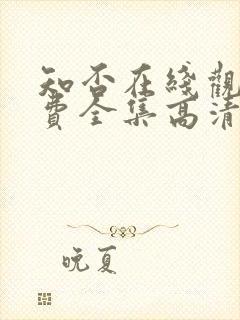 知否在綫觀
費全集高清
晚夏